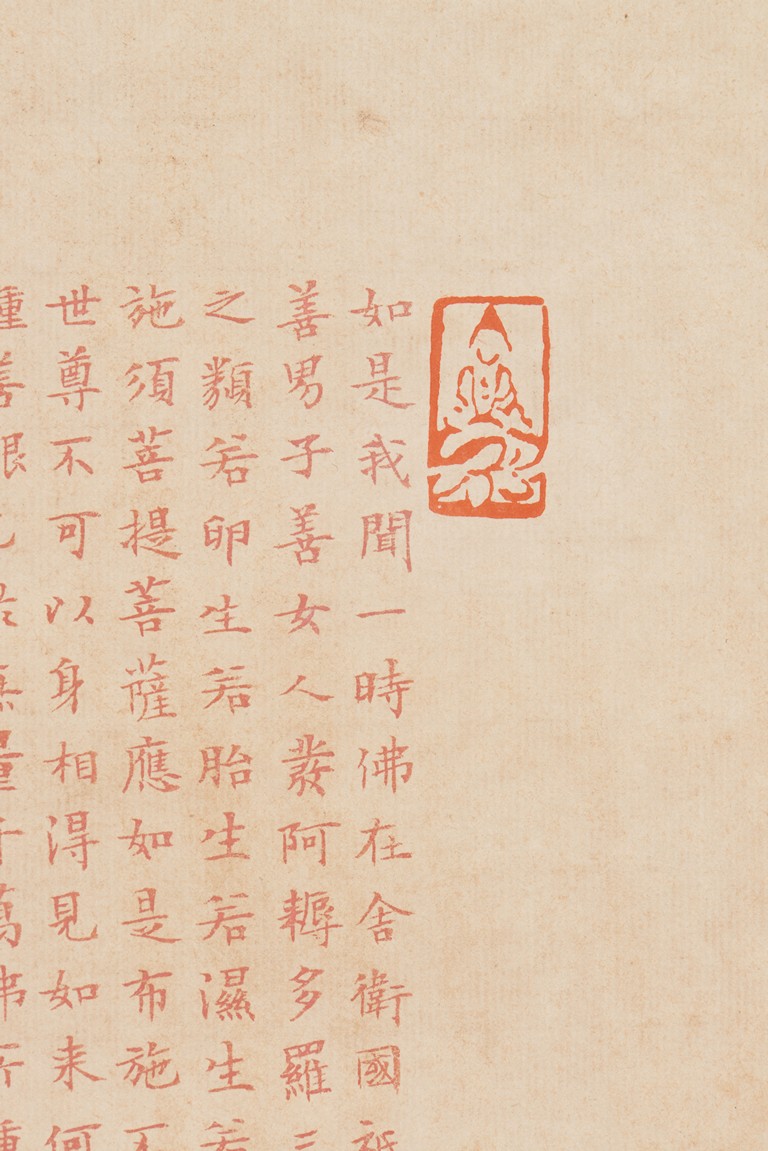 如是我聞一時佛在舍衛國祇
善男子善女人發阿耨多羅三
之類若卵生若胎生若濕生若
施須菩提菩薩應如是布施不
世尊不可以身相得見如来何
種善根
量千萬佛所種